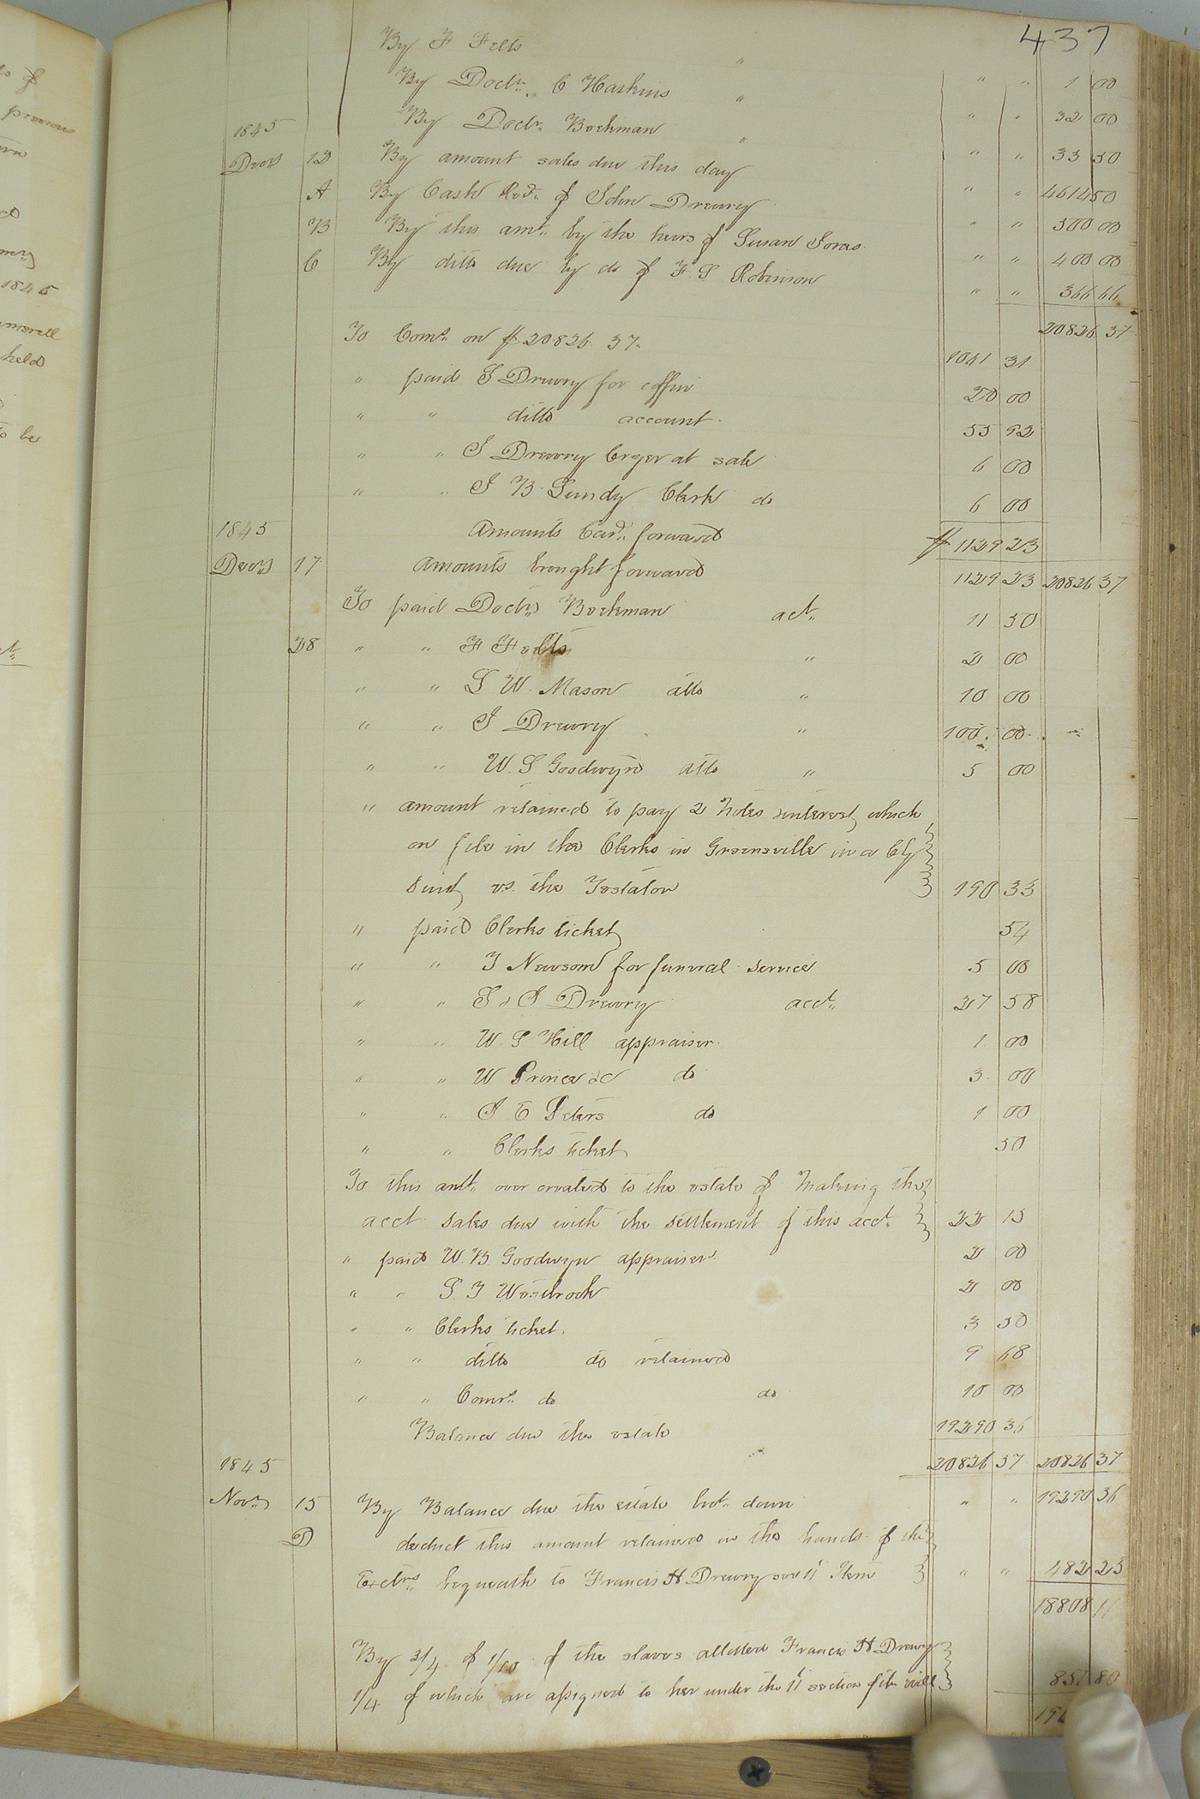 437
By F Felts "
By Doctr. C Haskins " " " 1 00
By Doctr. Bockman " " " 32 00
1845 Decr 12 By amount sales due this day " " 33 50
A By Cash Recd. of John Drewry " " 4614 50
B By this amt. by the heirs of Susan " " 500 00
C By ditto due by do of F S Robinson " " 400 00
" " 366 66
20826 37
To Coms. on $ 20826 37. 1041 31
" paid S Drewry for coffin 20 00
" " ditto account. 55 92
" " J Drewry Cryer at sale 6 00
" " J B Lundy Clerk do 6 00
1845 Amounts Card. forward $ 1129 23
Decr 17 Amounts brought forward 1129 23 20826 37
To paid Doctr Bockman act. 11 50
28 " " F Felts " 2 00
" " G W Mason atto " 10 00
" " J Drewry " 100. 00
" " W. S Goodwyn atto " 5 00
" amount retained to pay 2 Notes & interest which
on file in the Clerks in Greensville in a Cty
Suit vs. the Testator 190 33
" paid Clerks ticket 54
" " T Newsom for funeral service 5 00
" " S & J Drewry acct. 27 58
" " W S Hill appraiser. 1 00
" " W Prince &c do 3 00
" " J E Peters do 1 00
" " Clerks ticket 50
To this amt. over created to the estate of making the
acct sales due with the settlement of this acct. 22 15
" paid W. B. Goodwyn appraiser 2 00
" " S. T 2 00
" " Clerks ticket. 3 50
" " ditto do retained 9 68
" " Coms. do do 10 00
Balance due the estate 19290 36
1845 20826 37 20826 37
Novr 15 By Balance due the estate brot. down " " 19290 36
D deduct this amount retained in the hands of the
Exctrs bequeath to Francis H Drewry 11 Item " " 482 25
18808 11
By 3/4 of 1/10 of the slaves allotted Francis H. Drewry
1/4 of which are assigned to her under the 11 section of the will 851 80